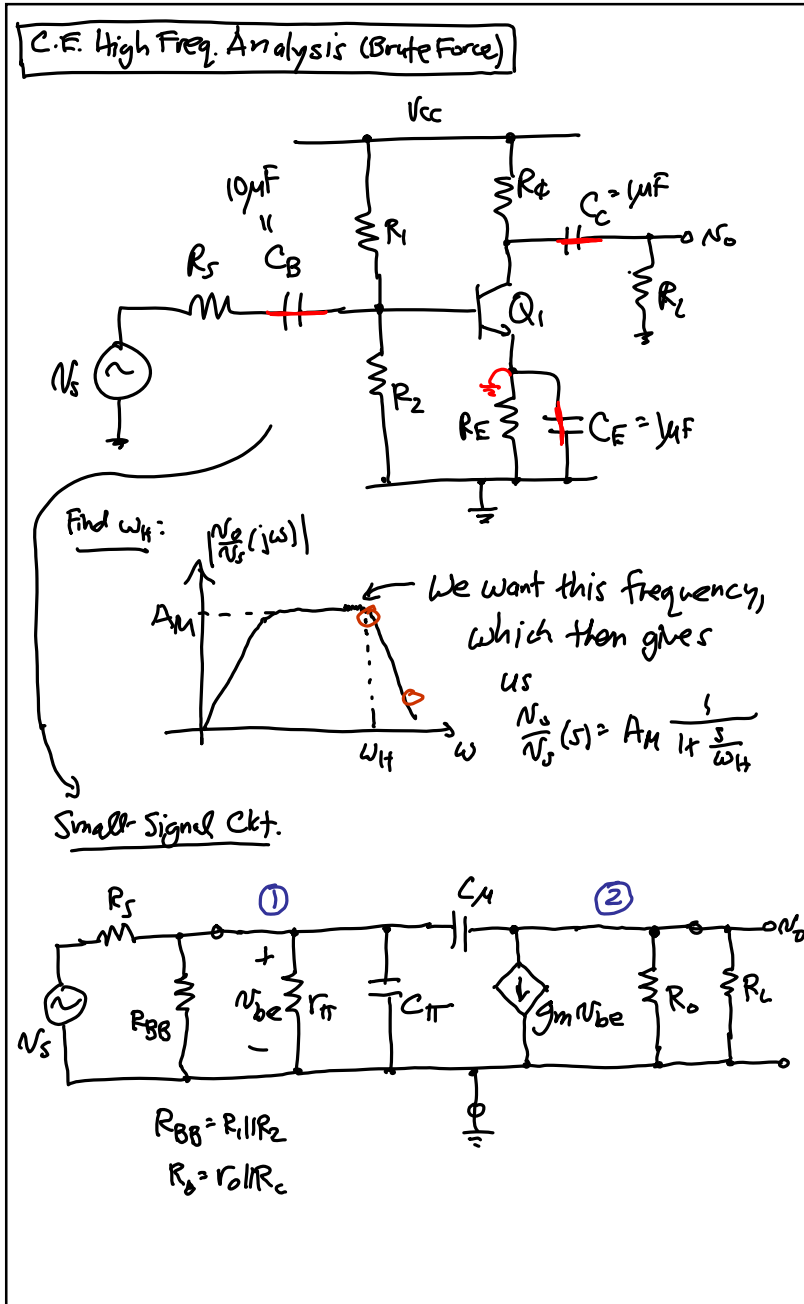 C.E. High Freq. Analysis (Brute Force)
Vcc
10μF
"
C_B
R_S
R_1
R_C
C_C = 1μF
v_o
R_L
Q_1
v_s
R_2
R_E
C_E = 1μF
Find ω_H:
|v_o/v_s (jω)|
A_M
ω_H
ω
We want this frequency,
which then gives
us
v_o/v_s (s) = A_M 1/(1+ s/ω_H)
Small-Signal Ckt.
R_S
①
C_μ
②
v_o
v_s
R_BB
+
v_be
-
r_π
C_π
g_m v_be
R_o
R_L
R_BB = R_1||R_2
R_o = r_o||R_c